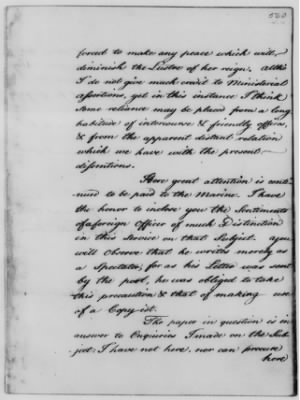 520
forced to make any peace which will
diminish the Lustre of her reign. Altho
I do not give much credit to Ministerial
assertions, yet in this instance I think
some reliance may be placed from a long
habitude of intercourse & friendly offices,
& from the apparent distant relation
which we have with the present
dissentions.
Here great attention is conti-
nued to be paid to the Marine. I have
the honor to inclose you the Sentiments
of a foreign Officer of much Distinction
in this Service on that Subject. You
will observe that he writes merely as
a Spectator, for as his Letter was sent
by the post, he was obliged to take
this precaution & that of making use
of a Copyist.
The paper in question is in
answer to Enquiries I made on the Sub-
ject, I have not here, nor can procure
here